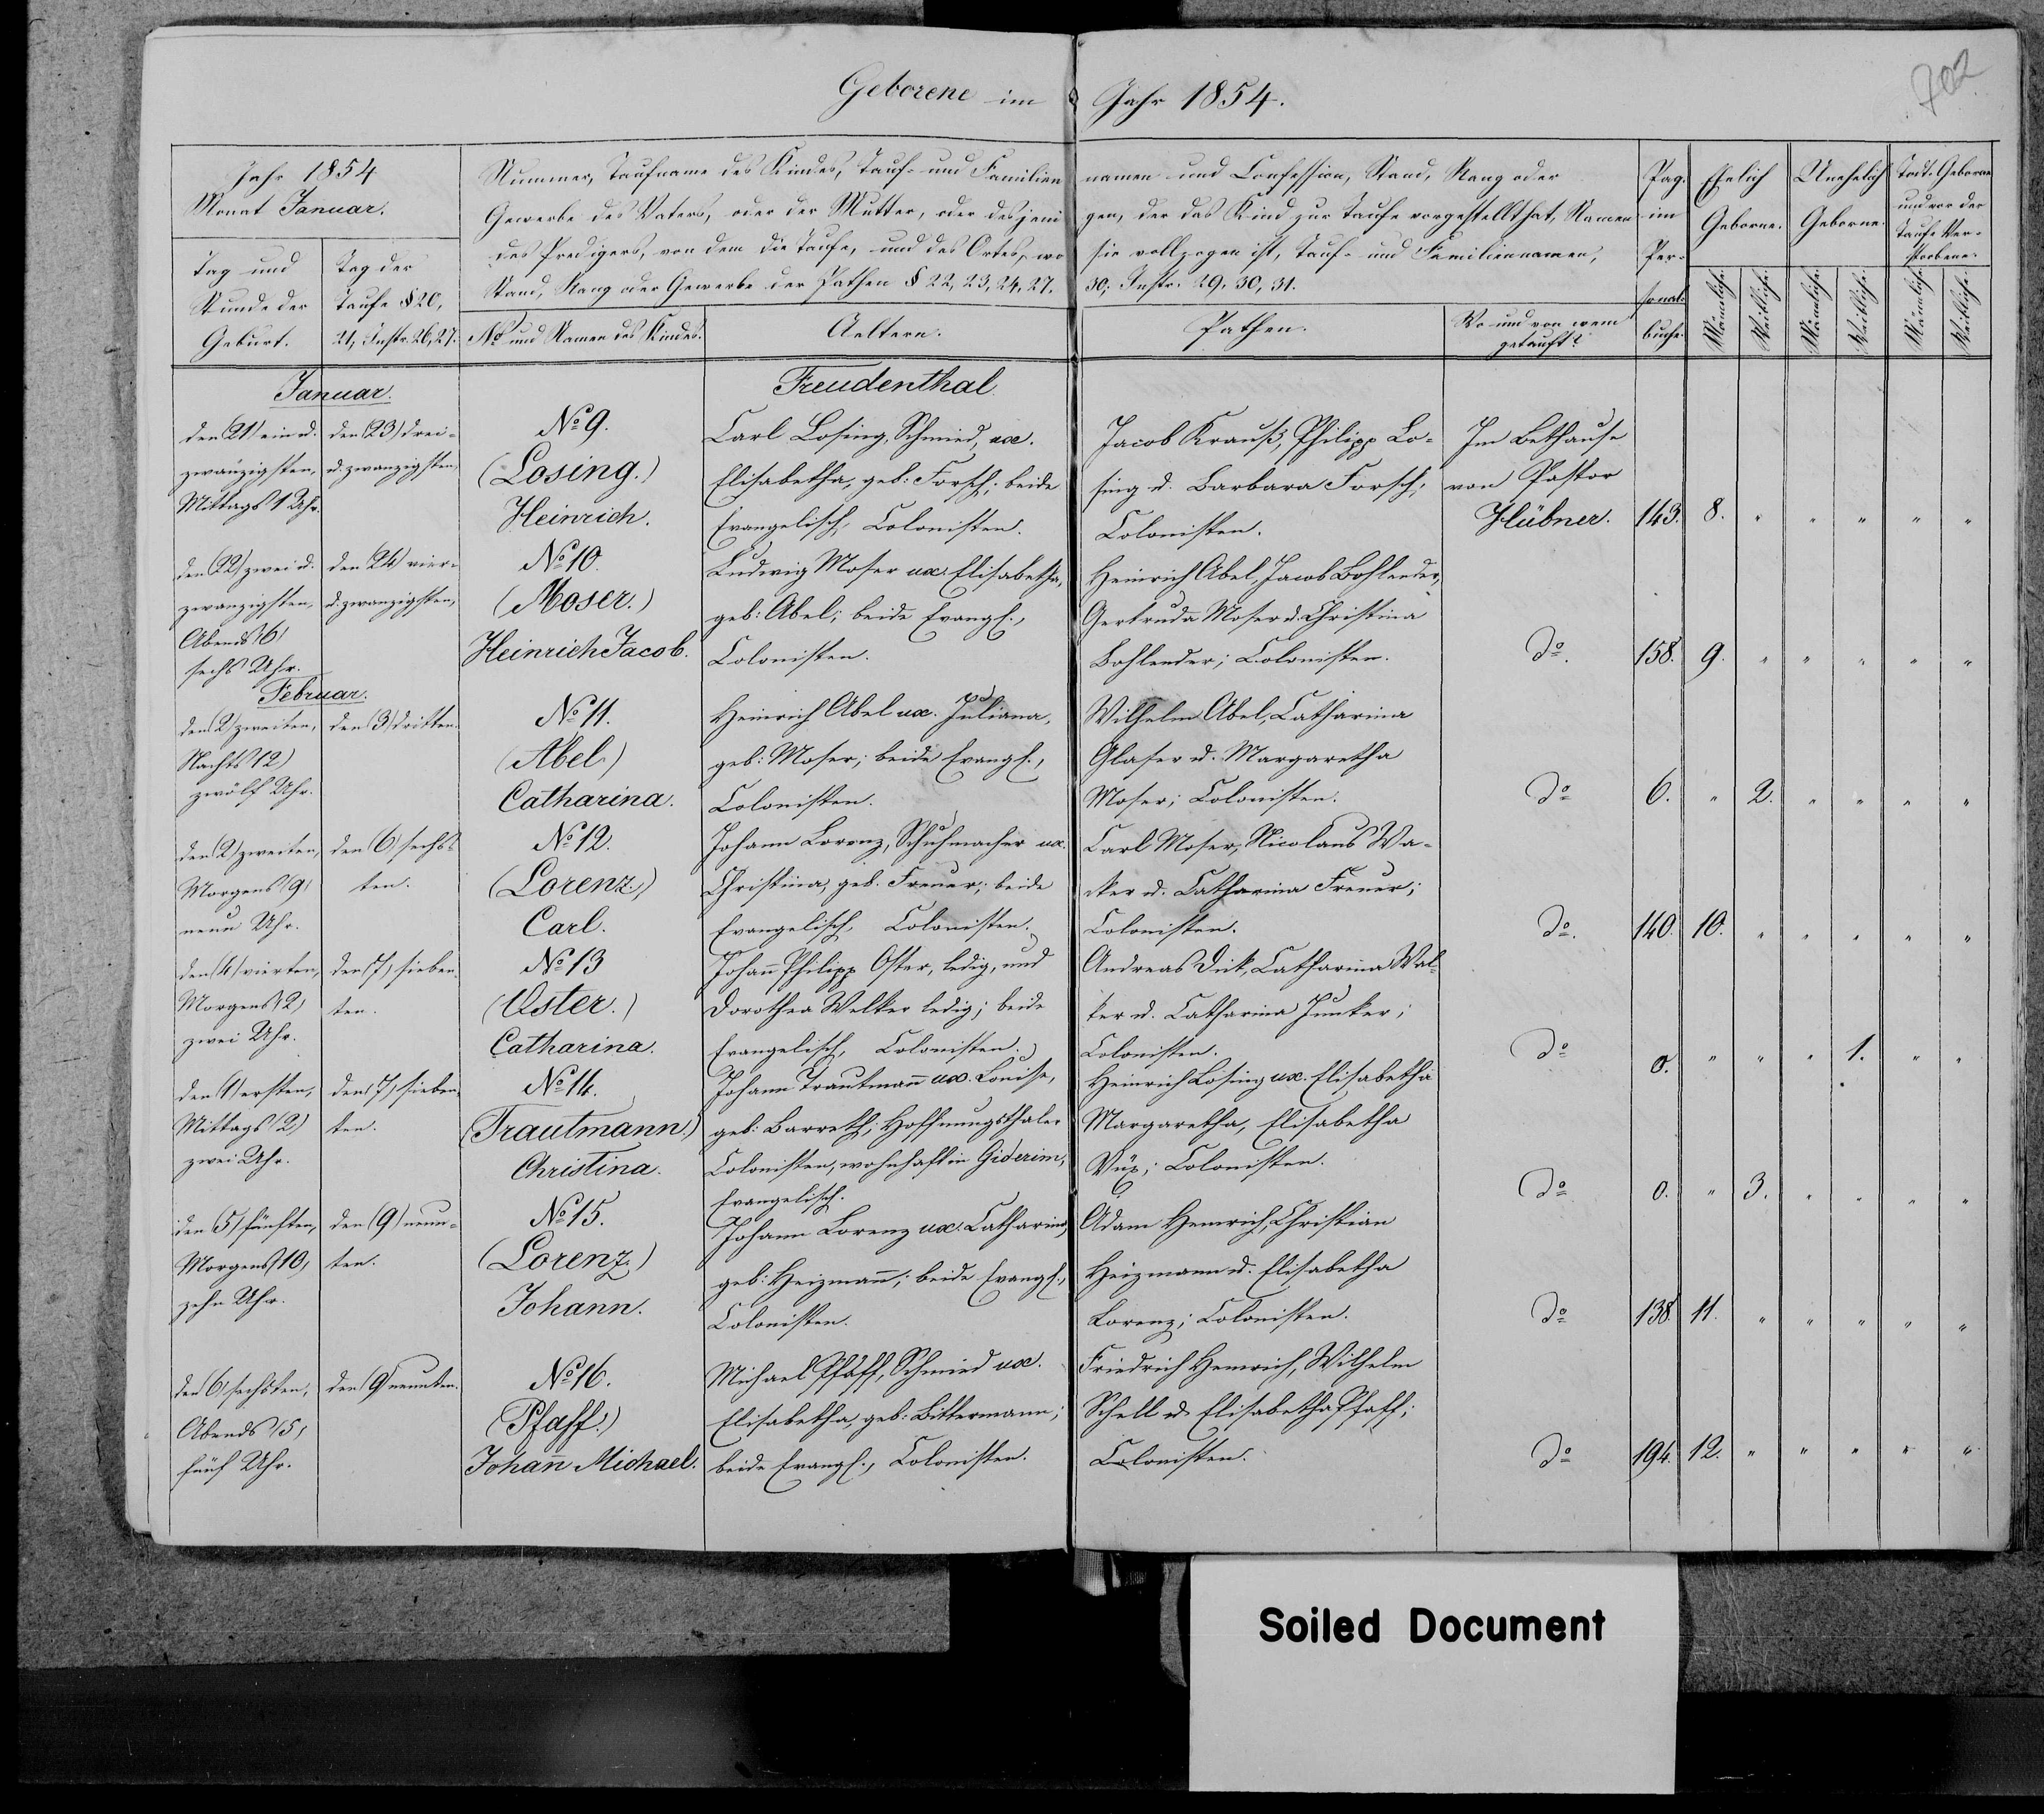 Geborene im Jahr 1854.
702
Jahr 1854
Monat Januar.
Tag und
Stunde der
Geburt.
Tag der
Taufe § 20,
21, Instr. 26, 27.
Nummer, Taufname des Kindes, Tauf- und Familien namen und Confession, Stand, Rang oder
Gewerbe des Vaters, oder der Mutter, oder desjeni gen, der das Kind zur Taufe vorgestellt hat, Namen
des Predigers, von dem die Taufe, und des Ortes, wo sie vollzogen ist, Tauf- und Familiennamen,
Stand, Rang oder Gewerbe der Pathen § 22, 23, 24, 27. 30; Instr. 29, 30, 31.
No und Namen des Kindes.
Aeltern.
Pathen.
Wo und von wem
getauft?
Pag.
im
Per-
sonal-
buche.
Ehelich
Geborne.
Unehelich
Geborne.
Todt-Geborne
und vor der
Taufe Ver-
storbene.
Männliche.
Weibliche.
Männliche.
Weibliche.
Männliche.
Weibliche.
Januar.
Freudenthal.
den (21) ein u.
zwanzigsten,
Mittags 1 Uhr.
den (23) drei-
u. zwanzigsten,
No 9.
(Losing.)
Heinrich.
Carl Losing, Schmied, ux.
Elisabetha, geb: Forsch; beide
Evangelisch, Colonisten.
Jacob Krauß, Philipp Lo-
sing u. Barbara Forsch;
Colonisten.
Im Bethause
von Pastor
Hübner.
143. 8. " " " " "
den (22) zwei u.
zwanzigsten,
Abends (6)
sechs Uhr.
den (24) vier-
u. zwanzigsten,
No 10.
(Moser.)
Heinrich Jacob.
Ludwig Moser ux. Elisabetha,
geb: Abel; beide Evangl.,
Colonisten.
Heinrich Abel, Jacob Bohlender,
Gertruda Moser u. Christina
Bohlender; Colonisten.
do. 158. 9. " " " " "
Februar.
den (2) zweiten,
Nachts (12)
zwölf Uhr.
den (3) dritten.
No 11.
(Abel.)
Catharina.
Heinrich Abel ux. Juliana,
geb: Moser; beide Evangl.,
Colonisten.
Wilhelm Abel, Catharina
Glaser u. Margaretha
Moser; Colonisten.
do 6. " 2. " " " "
den (2) zweiten,
Morgens (9)
neun Uhr.
den (6) sechs-
ten.
No 12.
(Lorenz.)
Carl.
Johann Lorenz, Schuhmacher ux.
Christina, geb. Freuer; beide
Evangelisch, Colonisten.
Carl Moser, Nicolaus Wa-
cker u. Catharina Freuer;
Colonisten.
do. 140. 10. " " " " "
den (4) vierten,
Morgens (2)
zwei Uhr.
den (7) sieben
ten.
No 13
(Oster.)
Catharina.
Johañ Philipp Oster, ledig, und
Dorothea Welker ledig; beide
Evangelisch, Colonisten.
Andreas Dick, Catharina Wal-
ker u. Catharina Junker;
Colonisten.
do 0. " " " 1. " "
den (1) ersten,
Mittags (2)
zwei Uhr.
den (7) sieben
ten.
No 14.
(Trautmann.)
Christina.
Johann Trautmañ ux. Louise,
geb: Barreth; Hoffnungsthaler
Colonisten, wohnhaft in Giderim,
Evangelisch.
Heinrich Losing ux. Elisabetha
Margaretha, Elisabetha
Vüx; Colonisten.
do 0. " 3. " " " "
den (5) fünften,
Morgens (10)
zehn Uhr.
den (9) neun-
ten.
No 15.
(Lorenz.)
Johann.
Johann Lorenz ux. Catharina,
geb: Heizmañ; beide Evangl.,
Colonisten.
Adam Hemrich, Christian
Heizmann u. Elisabetha
Lorenz; Colonisten.
do 138. 11. " " " " "
den (6) sechsten,
Abends (5)
fünf Uhr.
den (9) neunten.
No 16.
(Pfaff.)
Johañ Michael.
Michael Pfaff, Schmied ux.
Elisabetha, geb: Bittermann;
beide Evangl., Colonisten.
Friedrich Hemrich, Wilhelm
Schell u. Elisabetha Pfaff;
Colonisten.
do 194. 12. " " " " "
Soiled Document